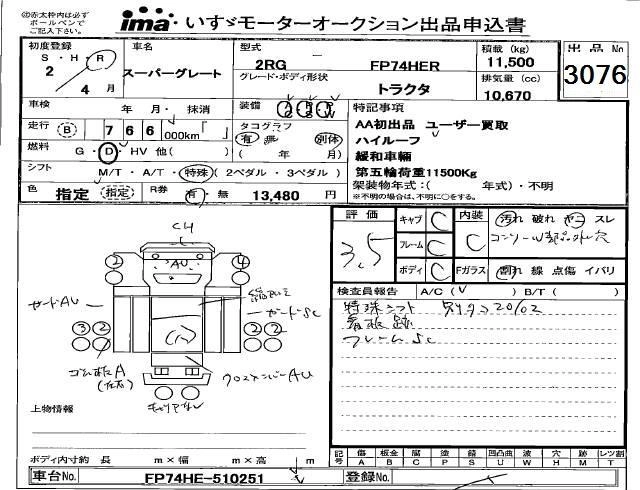 ◎赤太枠内は必ず
ボールペンで
ご記入下さい。
ima いすゞモーターオークション出品申込書
初度登録 S・H・R 2年 4月
車名 スーパーグレート
型式 2RG FP74HER
グレード・ボディ形状 トラクタ
積載 (kg) 11,500
排気量 (cc) 10,670
出品No 3076
車検 年 月・抹消
走行 B 7 6 6 000km「 」
燃料 G・D・HV 他( )
シフト M/T・A/T・特殊(2ペダル・3ペダル)
色 指定 指定 R券 有・無 13,480 円
装備
タコグラフ 有 無 別体
( 年 月)
特記事項
AA初出品 ユーザー買取
ハイルーフ
緩和車輛
第五輪荷重11500Kg
架装物年式:( 年式)・不明
※不明の場合は、不明に○をする。
評価 3.5
キャブ C
フレーム C
ボディ C
内装 C
汚れ 破れ ヤニ スレ
Fガラス 割れ 線 点傷 イバリ
検査員報告 A/C( V ) B/T( )
特殊シフト
看板跡
フレームSC
CH
AU
2 4
ガードAU
ガードSC
3 2 2 2
クロスメンバーAU
上物情報
ボディ内寸約 長 m×幅 m×高 m
記号 傷A 板金B 腐C 塗P 錆S 凹凸曲U 波W 穴H 跡M レツ割T
車台No. FP74HE-510251
登録No.